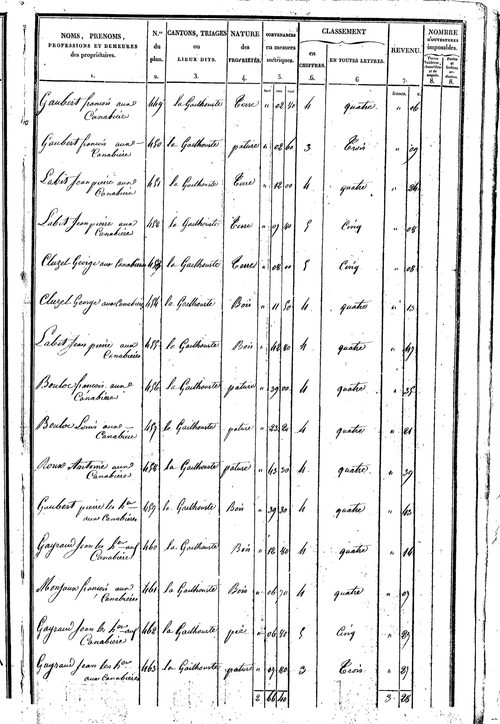 NOMS, PRÉNOMS, PROFESSIONS ET DEMEURES des propriétaires. N.os du plan. CANTONS, TRIAGES ou LIEUX DITS. NATURE des PROPRIÉTÉS. CONTENANCES en mesures métriques. CLASSEMENT en CHIFFRES. EN TOUTES LETTRES. REVENU. NOMBRE D'OUVERTURES imposables.
1. 2. 3. 4. 5. 6. 6 7. 8. 8.
Gaubert françois aux Canabière 449 la Gailhouste Terre " 02 40 4 quatre " 06
Gaubert françois aux Canabière 450 la Gailhouste pature " 02 60 3 Trois " 09
Labit Jean pierre aux Canabière 451 la Gailhouste Terre " 12 00 4 quatre " 24
Labit Jean pierre aux Canabière 452 la Gailhouste Terre " 07 40 5 Cinq " 08
Cluzel George aux Canabière 453 la Gailhouste Terre " 08 00 5 Cinq " 08
Cluzel George aux Canabière 454 la Gailhouste Bois " 11 50 4 quatre " 13
Labit Jean pierre aux Canabière 455 la Gailhouste Bois " 42 80 4 quatre " 47
Bouloc françois aux Canabière 456 la Gailhouste pature " 39 00 4 quatre " 35
Bouloc Louis aux Canabière 457 la Gailhouste pature " 23 20 4 quatre " 21
Roux Antoine aux Canabière 458 la Gailhouste pature " 43 30 4 quatre " 39
Gaubert pierre les h.er aux Canabière 459 la Gailhouste Bois " 39 30 4 quatre " 43
Gayraud Jean les h.er aux Canabière 460 la Gailhouste Bois " 12 40 4 quatre " 14
Monjaux françois aux Canabière 461 la Gailhouste Bois " 06 70 4 quatre " 07
Gayraud Jean les h.er aux Canabière 462 la Gailhouste pré " 06 20 5 Cinq "
Gayraud Jean les h.er aux Canabière 463 la Gailhouste pature " 07 20 3 Trois "
2 66 40 3 28